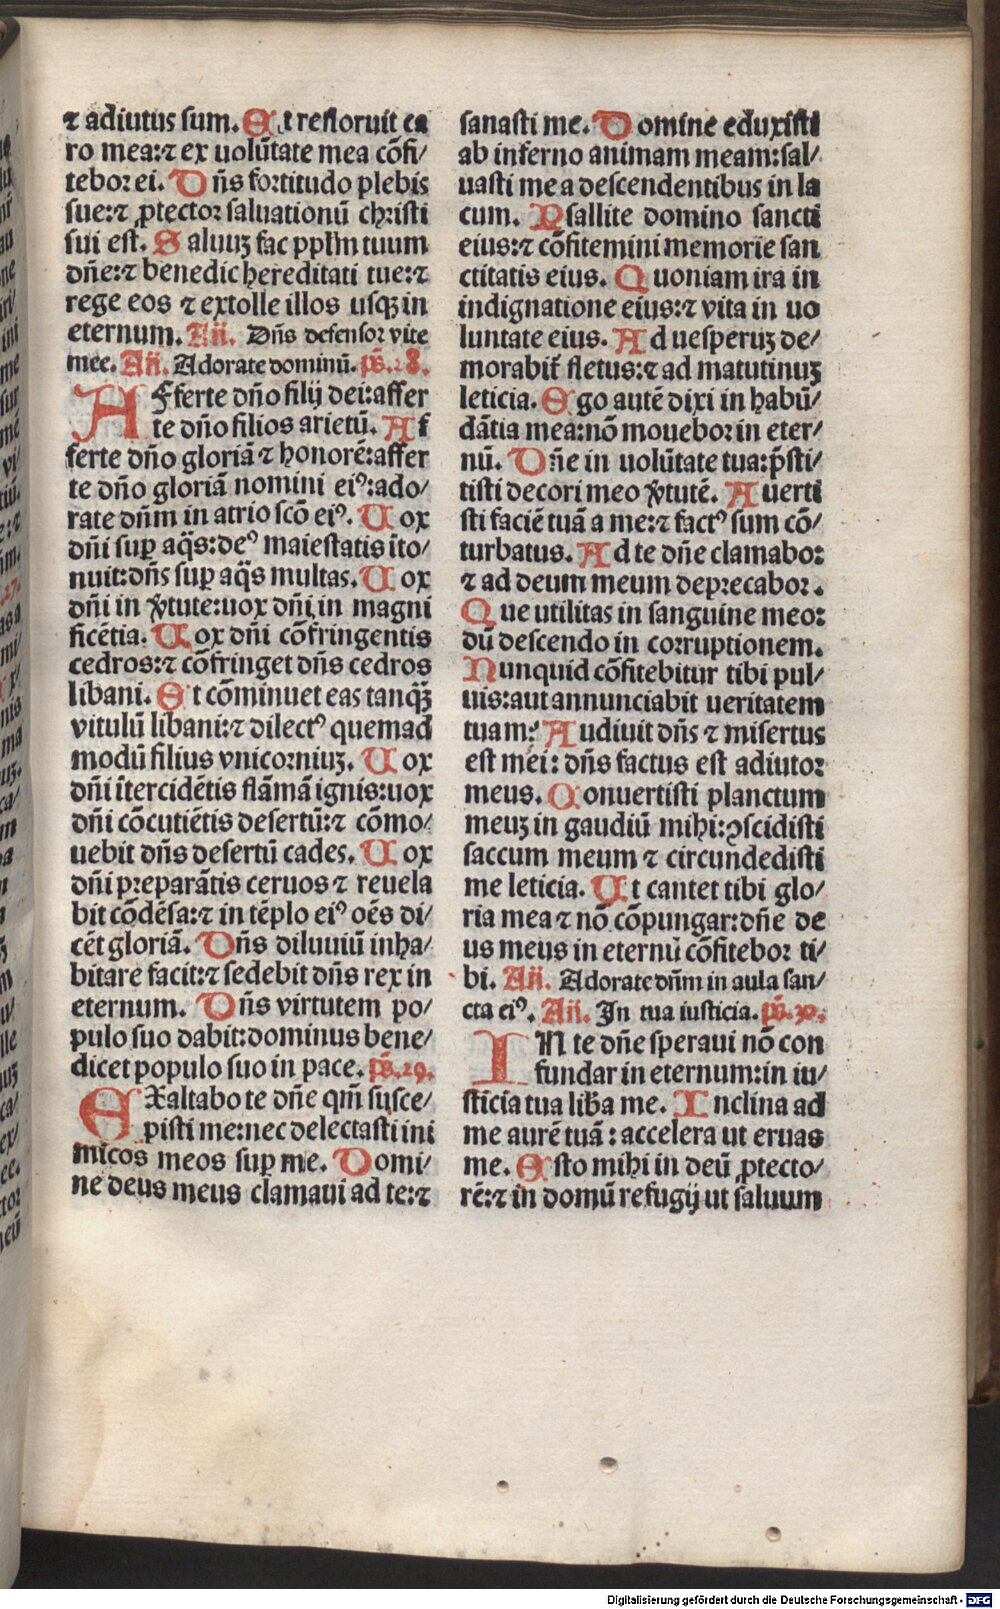 ⁊ adiutus sum. Et refloruit ca
ro mea:⁊ ex uolūtate mea cōfi/
tebor ei. Dn̄s fortitudo plebis
sue:⁊ ꝓtector saluationū christi
sui est. Saluuꝫ fac pplm̄ tuum
dn̄e:⁊ benedic hereditati tue:⁊
rege eos ⁊ extolle illos usqꝫ in
eternum. An̄. Dn̄s defensor vite
mee. An̄. Adorate dominū. ps̄.28.
AFferte dn̄o filij dei:affer
te dn̄o filios arietū. Af
ferte dn̄o gloriā ⁊ honorē:affer
te dn̄o gloriā nomini eiꝰ:ado/
rate dn̄m in atrio scō eiꝰ. Uox
dn̄i suꝑ aq̄s:deꝰ maiestatis īto/
nuit:dn̄s suꝑ aq̄s multas. Uox
dn̄i in v̓tute:uox dn̄i in magni
ficētia. Uox dn̄i cōfringentis
cedros:⁊ cōfringet dn̄s cedros
libani. Et cōminuet eas tanqꝫ̄
vitulū libani:⁊ dilectꝰ quemad
modū filius vnicorniuꝫ. Uox
dn̄i ītercidētis flāmā ignis:uox
dn̄i cōcutiētis desertū:⁊ cōmo/
uebit dn̄s desertū cades. Uox
dn̄i preparātis ceruos ⁊ reuela
bit cōdēsa:⁊ in tēplo eiꝰ oēs di/
cēt gloriā. Dn̄s diluuiū inha/
bitare facit:⁊ sedebit dn̄s rex in
eternum. Dn̄s virtutem po/
pulo suo dabit:dominus bene/
dicet populo suo in pace. ps̄.29.
EXaltabo te dn̄e qm̄ susce/
pisti me:nec delectasti ini
micos meos suꝑ me. Domi/
ne deus meus clamaui ad te:⁊
sanasti me. Domine eduxisti
ab inferno animam meam:sal/
uasti me a descendentibus in la
cum. Psallite domino sancti
eius:⁊ cōfitemini memorie san
ctitatis eius. Quoniam ira in
indignatione eius:⁊ vita in uo
luntate eius. Ad uesperuꝫ de/
morabit̄ fletus:⁊ ad matutinuꝫ
leticia. Ego autē dixi in habū/
dātia mea:nō mouebor in eter/
nū. Dn̄e in uolūtate tua:p̄sti/
tisti decori meo v̓tutē. Auerti
sti faciē tuā a me:⁊ factꝰ sum cō/
turbatus. Ad te dn̄e clamabo:
⁊ ad deum meum deprecabor.
Que utilitas in sanguine meo:
dū descendo in corruptionem.
Nunquid cōfitebitur tibi pul/
uis:aut annunciabit ueritatem
tuam: Audiuit dn̄s ⁊ misertus
est mei: dn̄s factus est adiutor
meus. Conuertisti planctum
meuꝫ in gaudiū mihi:ꝯscidisti
saccum meum ⁊ circundedisti
me leticia. Ut cantet tibi glo/
ria mea ⁊ nō cōpungar:dn̄e de
us meus in eternū cōfitebor ti/
bi. An̄. Adorate dn̄m in aula san/
cta eiꝰ. An̄. In tua iusticia. ps̄.30.
IN te dn̄e speraui nō con
fundar in eternum:in iu/
sticia tua lib̄a me. Inclina ad
me aurē tuā : accelera ut eruas
me. Esto mihi in deū ꝓtecto/
rē:⁊ in domū refugij ut saluum
Digitalisierung gefördert durch die Deutsche Forschungsgemeinschaft - DFG